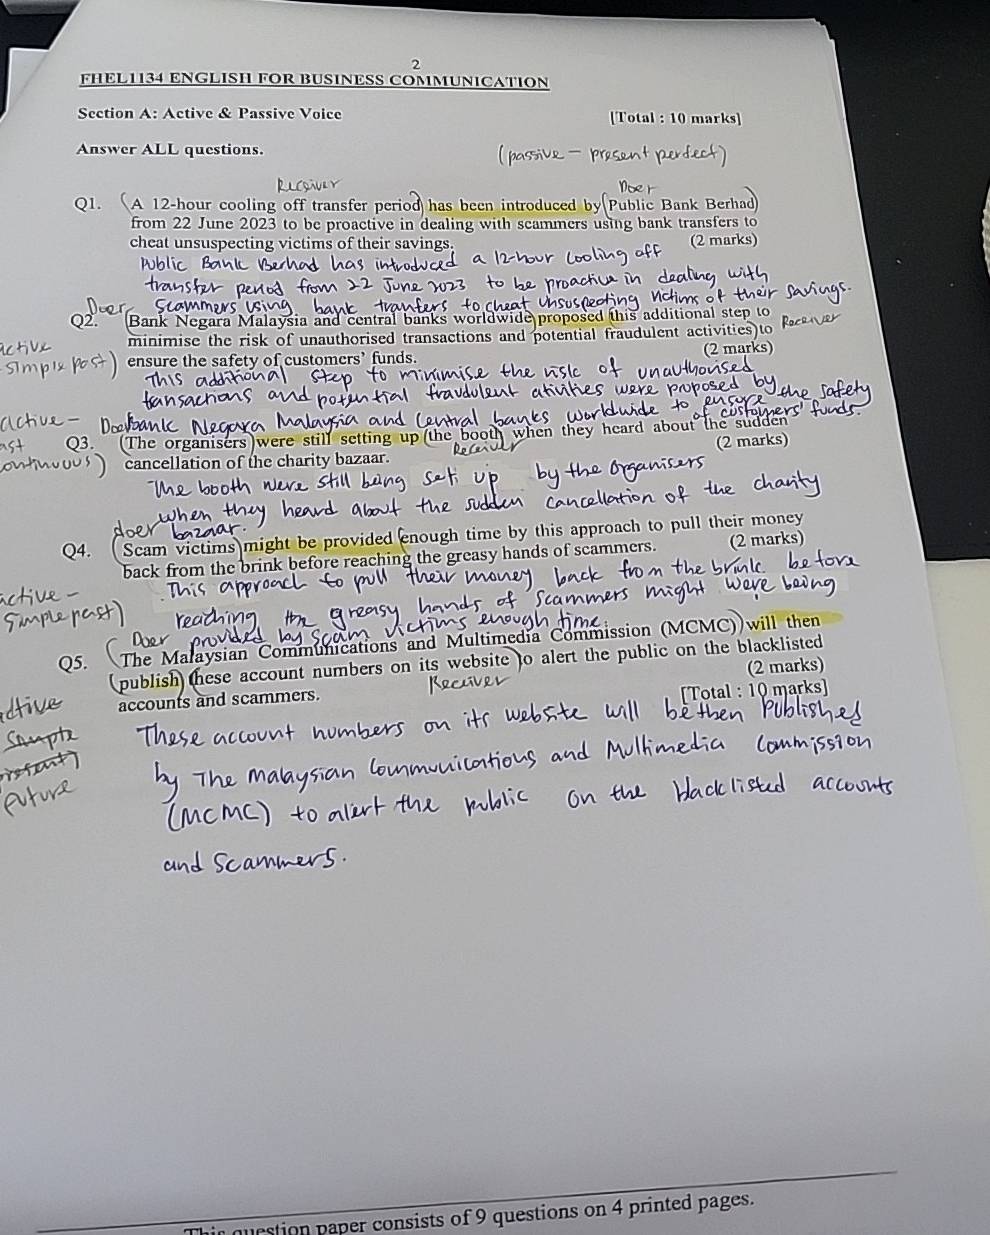 2
FHEL1134 ENGLISH FOR BUSINESS COMMUNICATION
Section A: Active & Passive Voice [Total : 10 marks]
Answer ALL questions. (passive - present perfect)
Receiver Doer
Q1. (A 12-hour cooling off transfer period) has been introduced by (Public Bank Berhad)
from 22 June 2023 to be proactive in dealing with scammers using bank transfers to
cheat unsuspecting victims of their savings. (2 marks)
Public Bank Berhad has introduced a 12-hour cooling off
transfer period from 22 June 2023 to be proactive in dealing with
scammers using bank tranfers to cheat unsuspecting victims of their savings.
Doer
Q2. (Bank Negara Malaysia and central banks worldwide) proposed (this additional step to
minimise the risk of unauthorised transactions and potential fraudulent activities) to Receiver
active
simple past) ensure the safety of customers' funds. (2 marks)
This additional step to minimise the risk of unauthorised
tansactions and potential fraudulent ativities were proposed by
bank Negara Malaysia and Central banks worldwide to ensure the safety
of customers' funds.
active - Doer
Q3. (The organisers) were still setting up (the booth when they heard about the sudden
continuous) cancellation of the charity bazaar. Receiver (2 marks)
The booth were still being set up by the organisers
when they heard about the sudden cancellation of the charity
bazaar.
doer
Q4. (Scam victims) might be provided (enough time by this approach to pull their money
back from the brink before reaching the greasy hands of scammers. (2 marks)
active -
simple past)
This approach to pull their money back from the brink before
reaching the greasy hands of scammers might were being
provided by scam victims enough time.
Doer
Q5. (The Malaysian Communications and Multimedia Commission (MCMC)) will then
(publish) (these account numbers on its website) to alert the public on the blacklisted
accounts and scammers. Receiver (2 marks)
[Total : 10 marks]
active
simple
present)
future
These account numbers on its website will be then published
by The Malaysian Communications and Multimedia Commission
(MCMC) to alert the public on the blacklisted accounts
and scammers.
This question paper consists of 9 questions on 4 printed pages.